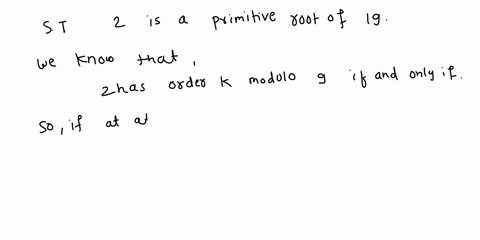 S.T 2 is a primitive root of 19.
we know that,
2 has order k modulo 9 if and only if.
So, if at at